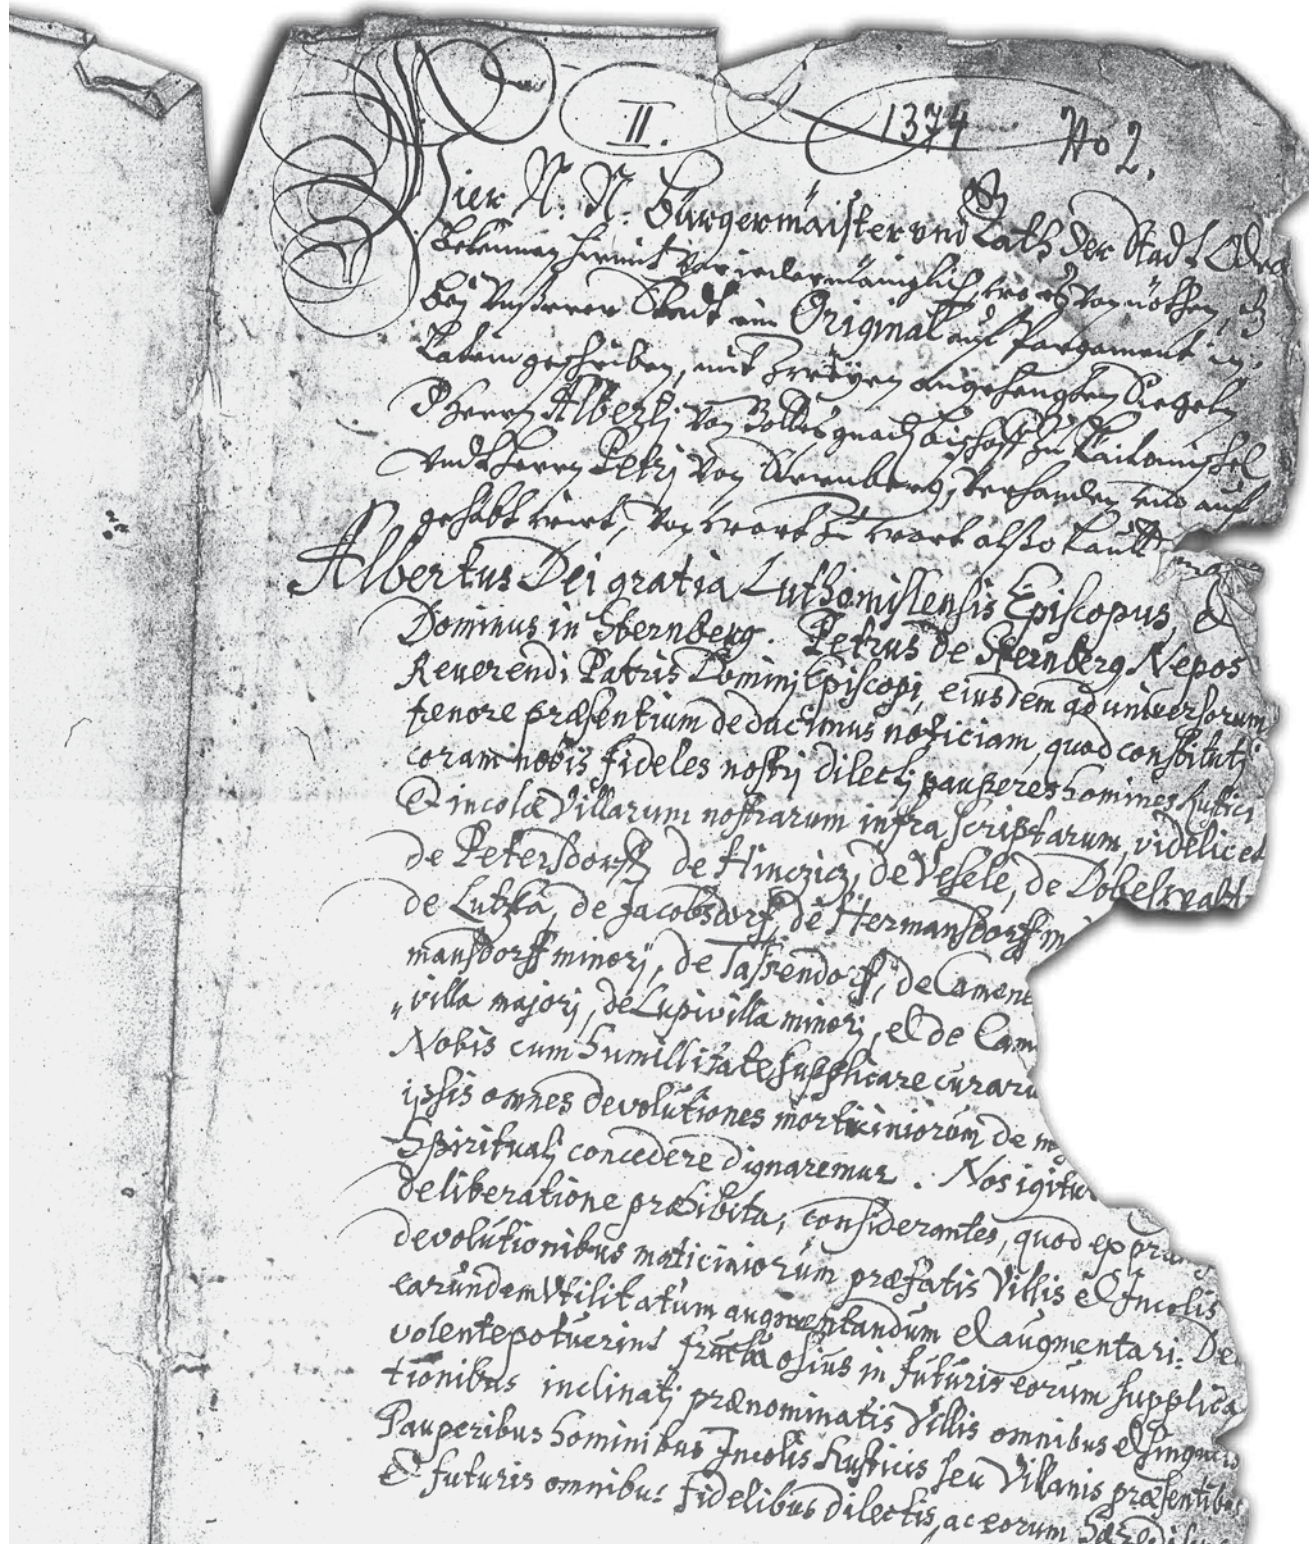 II.
1374
No 2.
Wier N. N. Bürgermaister und Rath der Stadt Odra
bekennen hiemit vor iedermäniglich, wo es von nöthen,
bey Unserer Stadt ein Original auf Pargament in
Latein geschriben, mit Zweyen angehengten Siegeln
Herrn Alberti von Gottes gnaden Bischoff zu Laitomischel
undt Herrn Petri von Sternberg, verhanden und auf
gehabt wirt, von wort zu wort also lautt
Albertus Dei gratia Luthomislensis Episcopus, &
Dominus in Sternberg. Petrus de Sternberg Nepos
Reuerendi Patris Dominj Episcopi, eiusdem ad universorum
tenore præsentium deducimus noticiam, quod constitutj
coram nobis fideles nostrj dilectj pauperes homines Rustici
& incolæ Villarum nostrarum infra scriptarum, videlicet
de Petersdorff, de Hinczicz, de Vesele, de Dobeswalt
de Lutzka, de Jacobsdorf, de Hermansdorff m
mansdorff minorj, de Tassendorf, de Camene
villa majorj, de Lupivilla minorj, & de Cam
Nobis cum humillitate supplicare curaru
ipsis omnes devolutiones morticiniorum de
Spiritualj concedere dignaremur. Nos igitur
deliberatione præhibita, considerantes, quod ex præ
devolutionibus moticiniorum præfatis Villis & Incolis
earundem Vtilitatum augmentandum & augmentari: Deo
volente potuerint fructuosius in futuris eorum supplica
tionibus inclinatj prænominatis Villis omnibus & singulis
Pauperibus hominibus Incolis Rusticis seu Villanis præsentibus
& futuris omnibus fidelibus dilectis, ac eorum